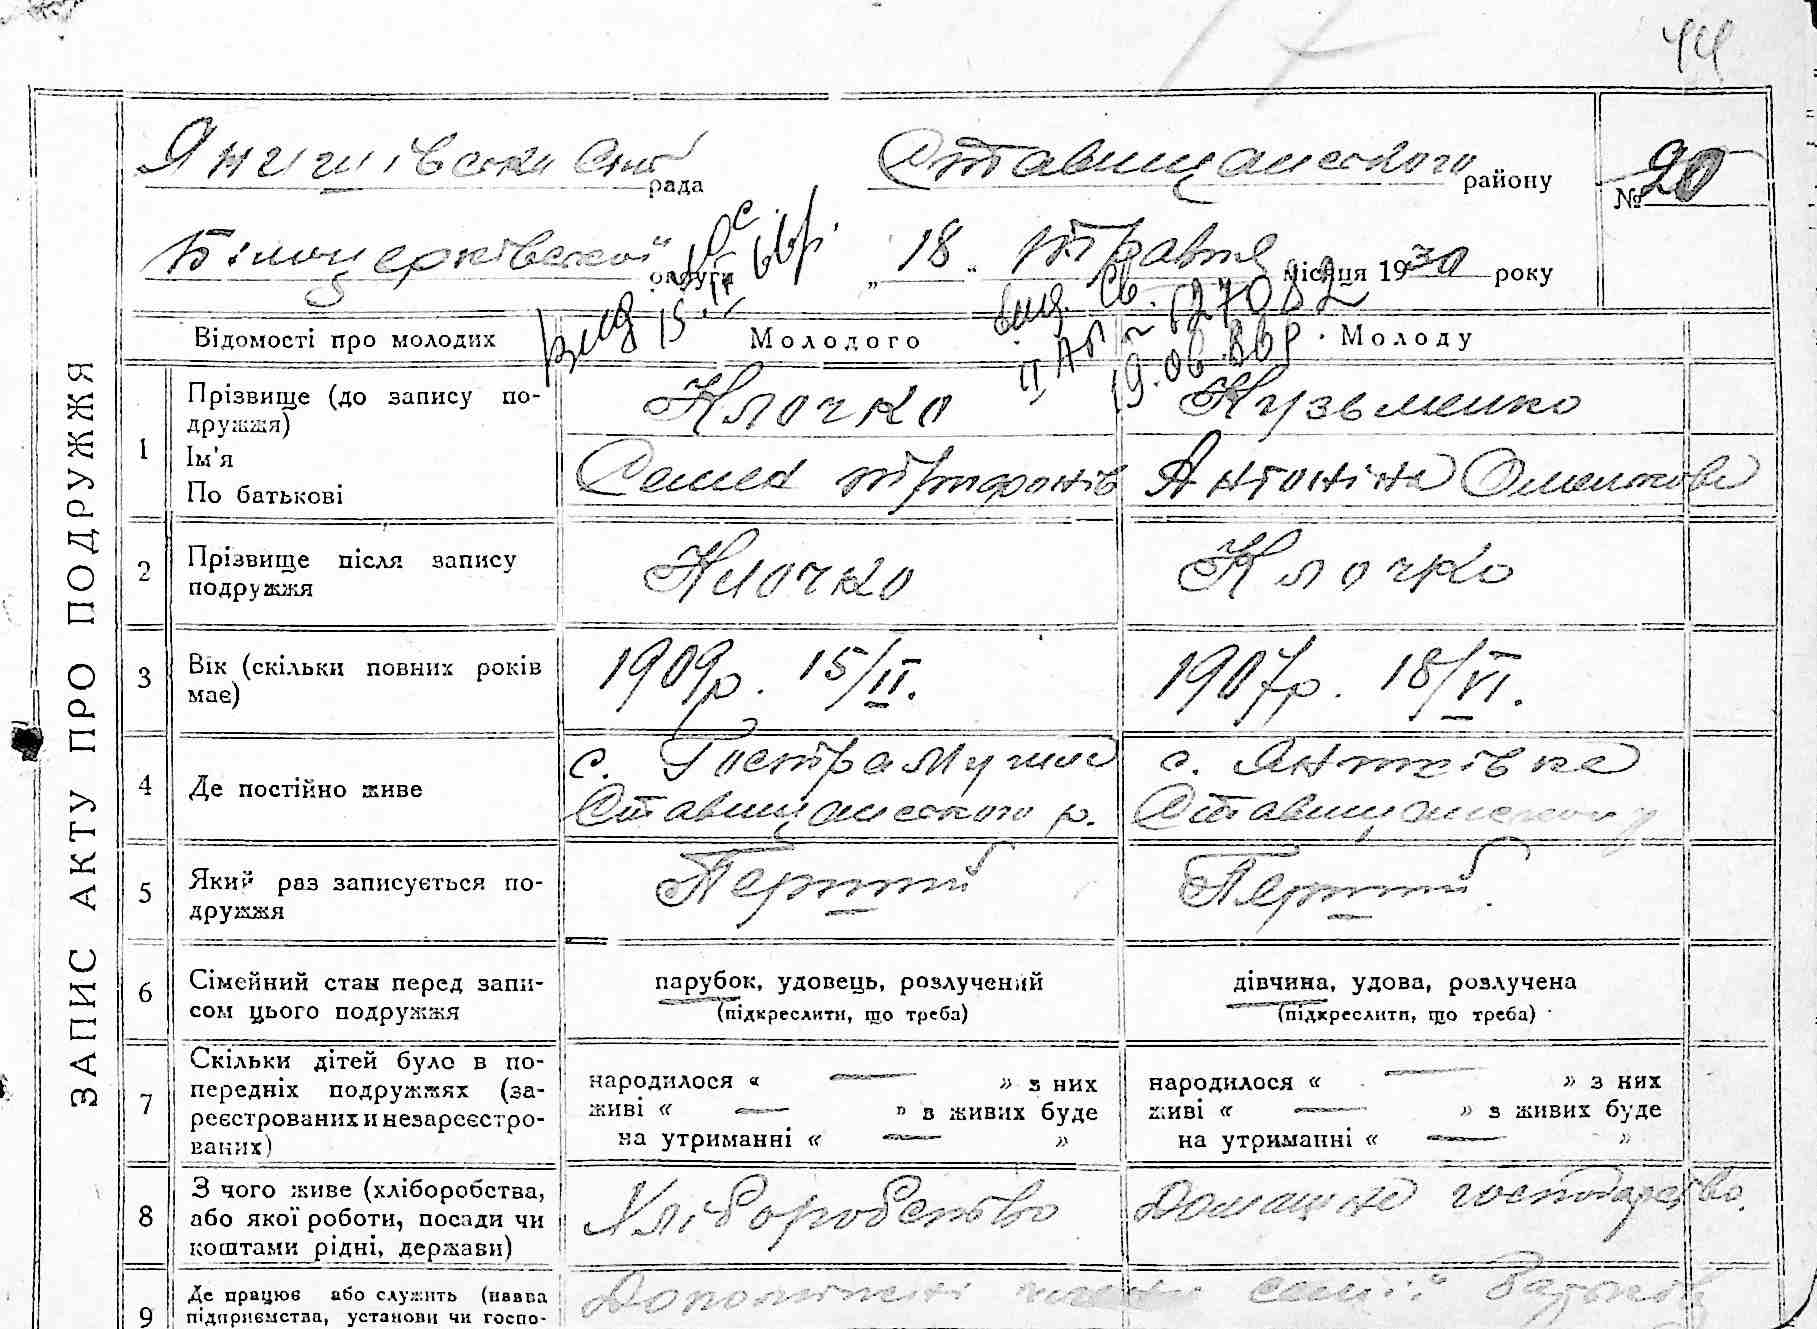 44
ЗАПИС АКТУ ПРО ПОДРУЖЖЯ
рада Ставищанського району № 20
Білоцерківської округи „ 18 „ травня місяця 1930 року
Відомості про молодих Молодого Молоду
1 Прізвище (до запису по-
дружжя) Клочко Кузьменко
Ім'я
По батькові Семен Трифонів Антоніна Омелькова
2 Прізвище після запису
подружжя Клочко Клочко
3 Вік (скільки повних років
має) 1909р. 15/II. 1907р. 18/VI.
4 Де постійно живе с. Гостра Могила с. Янишівка
Ставищанського р. Ставищанського р
5 Який раз записується по-
дружжя Перший Перший.
6 Сімейний стан перед запи-
сом цього подружжя парубок, удовець, розлучений дівчина, удова, розлучена
(підкреслити, що треба) (підкреслити, що треба)
7 Скільки дітей було в по-
передніх подружжях (за-
реєстрованих и незареєстро-
ваних) народилося « — » з них народилося « — » з них
живі « — » в живих буде живі « — » з живих буде
на утриманні « — » на утриманні « — »
8 З чого живе (хліборобства,
або якої роботи, посади чи
коштами рідні, держави) Хліборобство Домашнє господарство.
9 Де працює або служить (назва
підприємства, установи чи госпо-